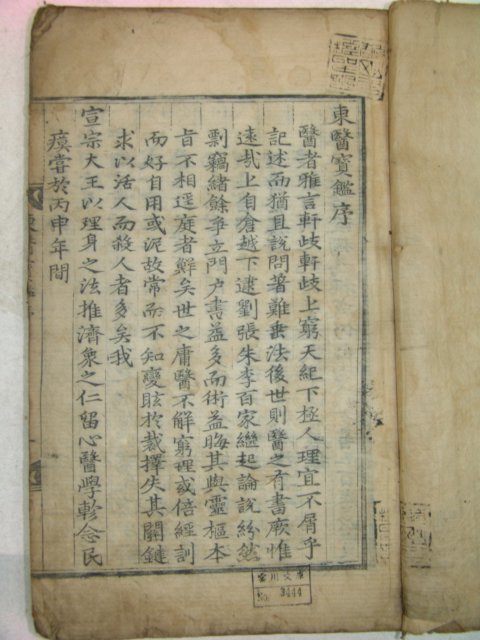 東醫寶鑑序
醫者雅言軒歧軒歧上窮天紀下極人理宜不屑乎
記述而猶且說問著難垂法後世則醫之有書厥惟
遠哉上自倉越下逮劉張朱李百家繼起論說紛然
剽竊緖餘爭立門户書益多而術益晦其與靈樞本
旨不相逕庭者鮮矣世之庸醫不解窮理或倍經訓
而好自用或泥故常而不知變眩於裁擇失其關鍵
求以活人而殺人者多矣我
宣宗大王以理身之法推濟衆之仁留心醫學軫念民
瘼嘗於丙申年間
No. 3444